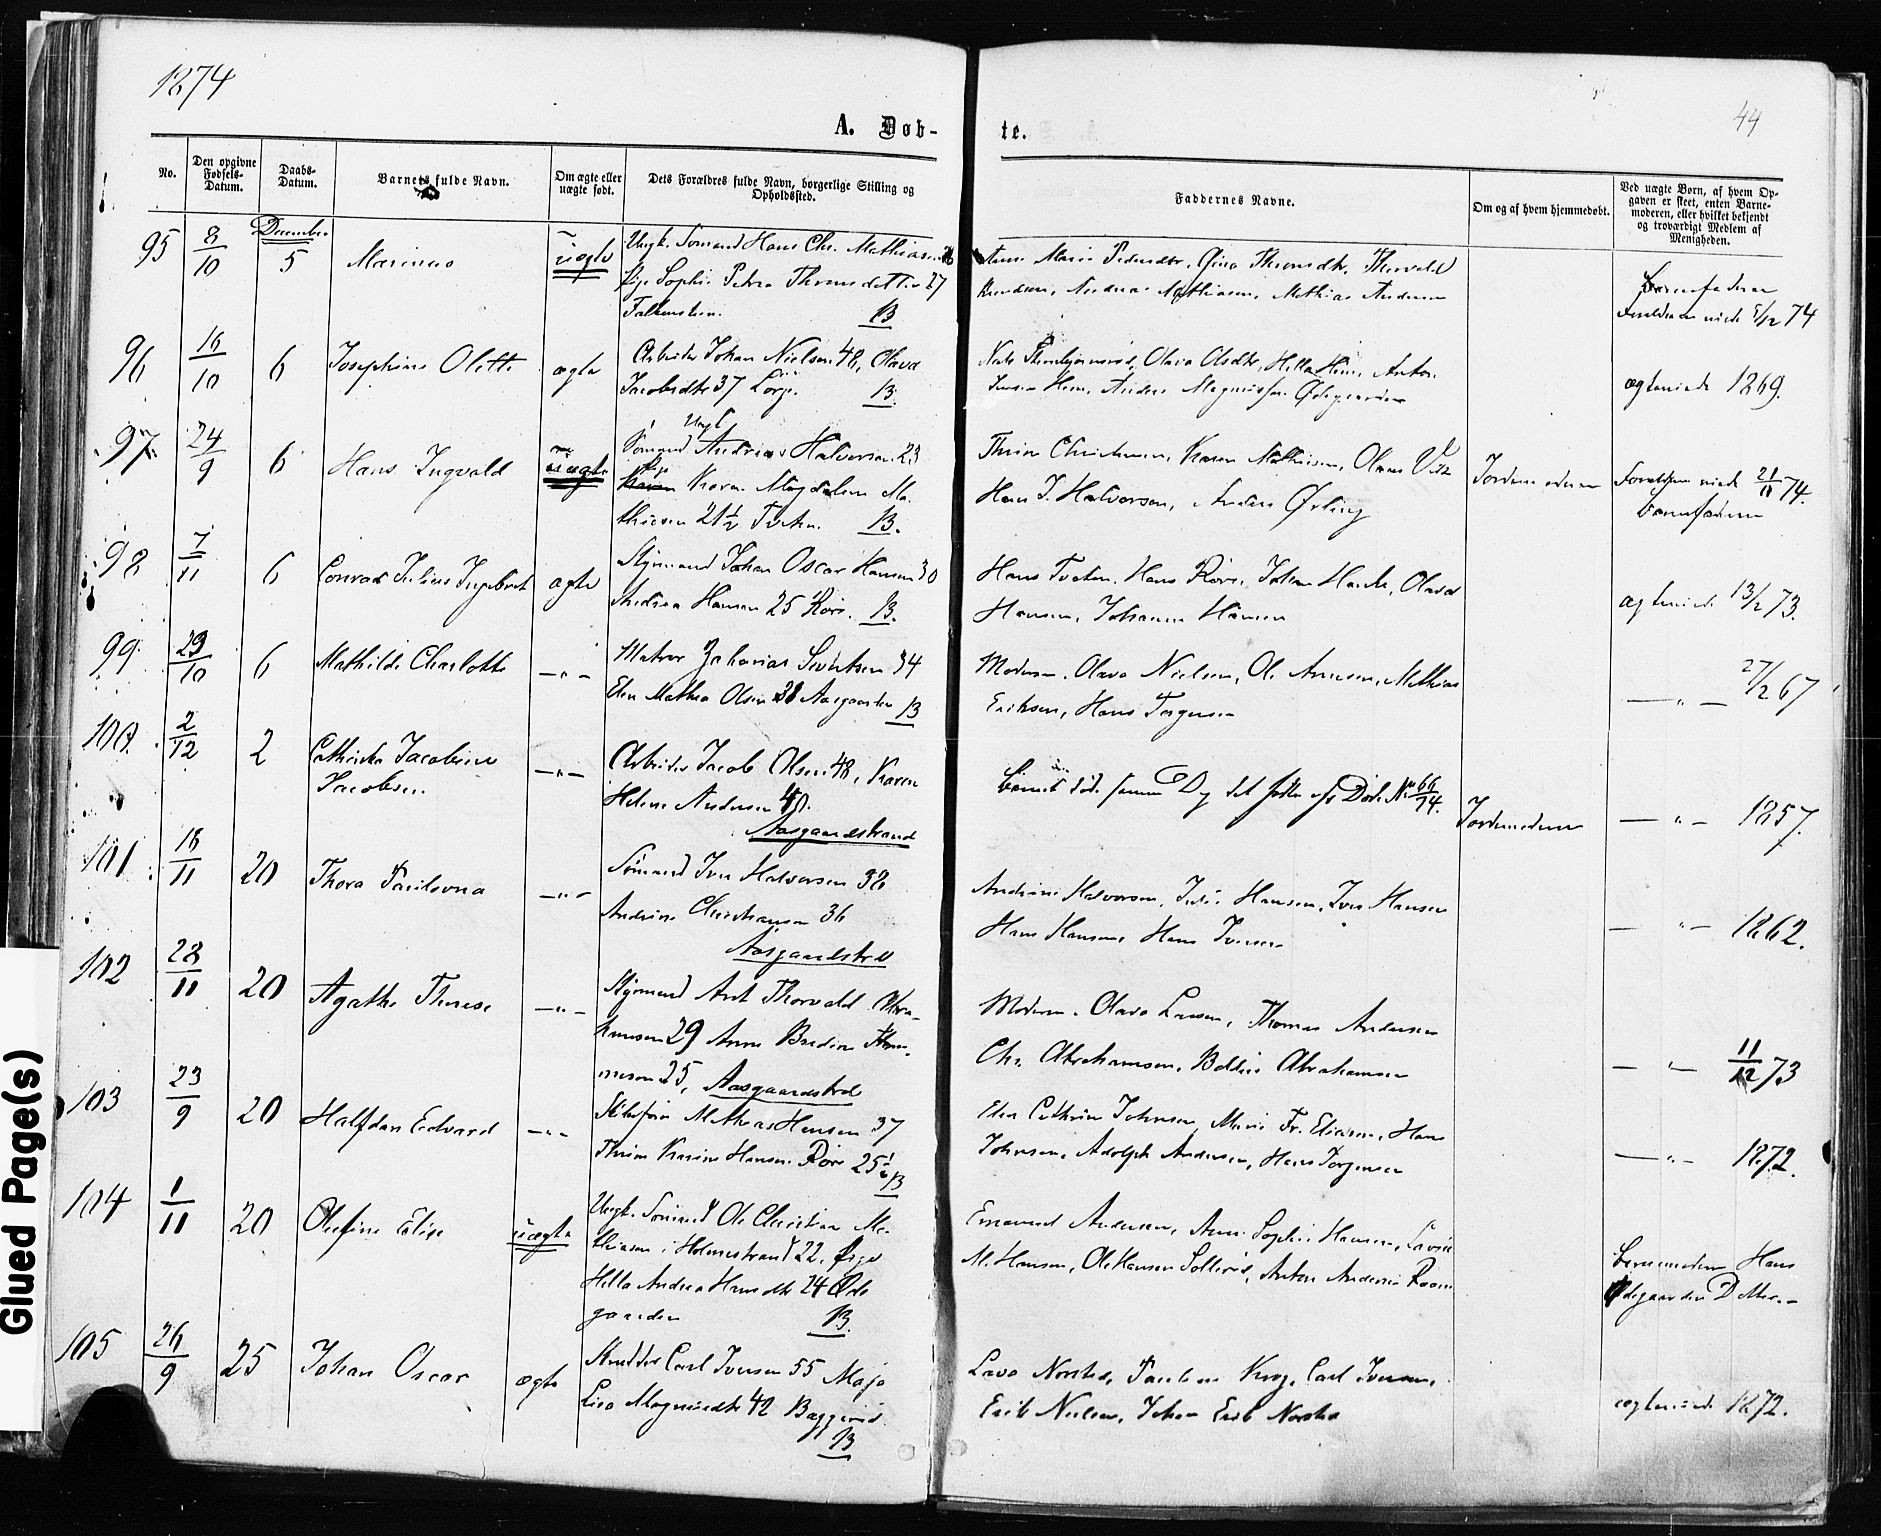 1874
44
A. Døb-
te.
No.
Den opgivne Fødsels-Datum.
Daabs-Datum.
Barnets fulde Navn.
Om ægte eller uægte født.
Dets Forældres fulde Navn, borgerlige Stilling og Opholdssted.
Faddernes Navne.
Om og af hvem hjemmedøbt.
Ved uægte Børn, af hvem Opgaven er skeet, enten Barnemoderen, eller hvilket bekjendt og troværdigt Medlem af Menigheden.
December
95 8/10 5 Marinus uægte Ungk. Sømand Hans Chr. Mathiasen
Pige Sophie Petrea Thronsdatter 27
Falkensten. B
Anne Marie Pedersdtr, Gina Thronsdtr, Thorvald
Knudsen, Mathiasen, Mathias Andersen
Barnefaderen
74
96 16/10 6 Josephine Olette ægte Arbeider Johan Nielsen 48, Olava
Jacobsdtr 37 B.
Olava Olsdtr, Hella Hem, Anton
Jensen Hem, Anders Ødegaarden
ægteviede 1869.
97. 24/9 6 Hans Ingvald uægte Ungk
Sømand Andreas Halvorsen 23
Pige Karen Magdalene Ma-
thiesen 21 1/2 Tveten. B.
Thrine Christensen, Karen Mathisen,
Hans J. Halvorsen, Anders Ørling
Jordemoderen
Forældrene viede 21/11 74.
Barnefaderen
98 7/11 6 Conrad Julius Ingebret ægte Styrmand Johan Oscar Hansen 30
Andrea Hansen 25 Røre. B.
Hans Tveten, Hans Røre, Johan Olava
Hansen, Johanne Hansen
ægteviede 13/2 73.
99 29/10 6 Mathilde Charlotte — " — Matros Zakarias Sivertsen 34
Elen Mathea Olsen 38 Aasgaarden B
Moderen, Olava Nielsen, Ole Arnesen, Mathias
Eriksen, Hans Jørgensen
— " — 27/2 67
100. 2/12 2 Cathinka Jacobine
Jacobsen — " — Arbeider Jacob Olsen 48, Karen
Helene Andersen 40.
Aasgaardstrand
Barnet døde samme Dag det fødtes cfr Døde No 66/74.
Jordemoderen
— " — 1857.
101 16/11 20 Thora Paulovna — " — Sømand Iver Halvorsen 38
Andrine Christiansen 36
Aasgaardstrd
Andrine Halvorsen, Julie Hansen, Iver Hansen
Hans Hansen, Hans Iversen
— " — 1862.
102 28/11 20 Agathe Therese — " — Styrmand Ant Thorvald Abra-
hamsen 29 Anne Bredine Thom-
mesen 25, Aasgaardstrd
Moderen, Olava Larsen, Thomas Andersen
Chr. Abrahamsen, Boldine Abrahamsen
— " — 11/12 73
103 23/9 20 Halfdan Edvard — " — Skibsfører Mathias Hansen 37
Thrine Karine Hansen Røre 25 1/2 B
Elen Cathrine Johnsen, Marie Fr. Eliasen, Hans
Johnsen, Adolph Andersen, Hans Jørgensen
— " — 1872.
104 1/11 20 Olefine Elise uægte Ungk. Sømand Ole Christian Ma-
thiasen i Holmestrand 22, Pige
Hella Andrea Hansdtr 24 Øde
gaarden B.
Emanuel Andersen, Anne Sophie Hansen,
M. Hansen, Ole Hansen Solløs, Anton Andersen
Barnemoderen Hans
Ødegaarden
105 26/9 25 Johan Oscar ægte Skredder Carl Iversen 55 Maja
Lisa Magnusdtr 42 Baggerød.
B
Lava Norsted, Pauline Krog, Carl Iversen,
Erik Nielsen, Johan Erik Norsted
ægteviede 1872.
Glued Page(s)